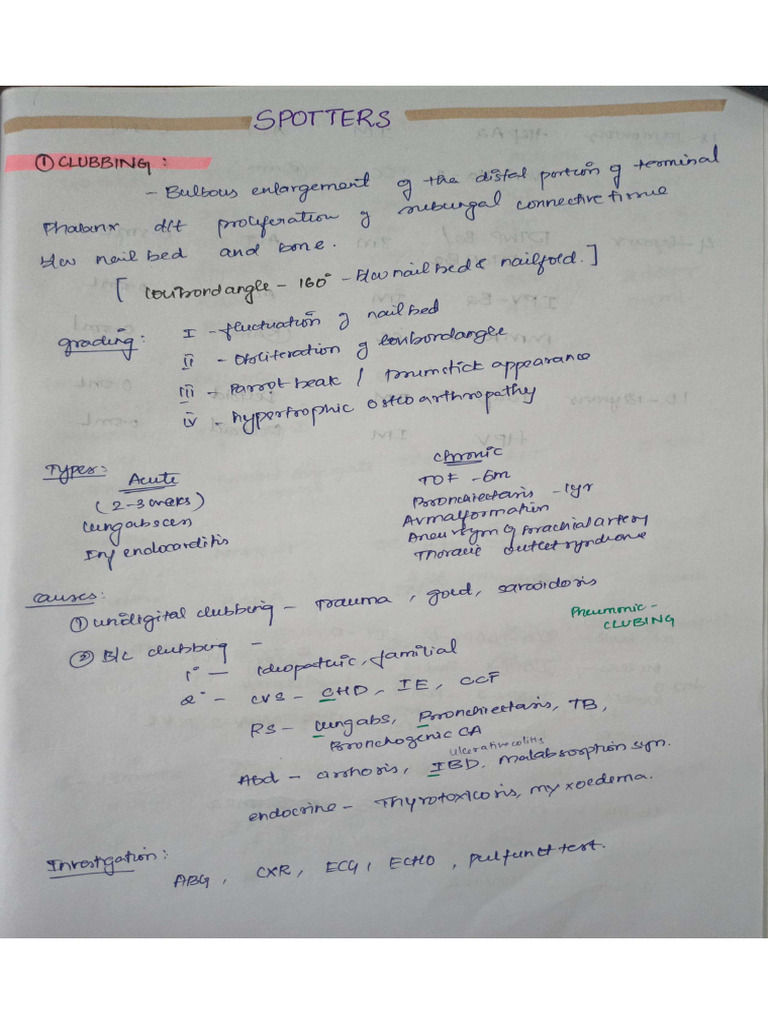 SPOTTERS
① CLUBBING :
- Bulbous enlargement of the distal portion of terminal
Phalanx d/t proliferation of subungal connective tissue
b/w nail bed and bone.
[ Lovibond angle - 160° - b/w nail bed & nailfold. ]
Grading : I - fluctuation of nail bed
II - Obliteration of Lovibond angle
III - Parrot beak / Drumstick appearance
IV - Hypertrophic osteoarthropathy
Types : Acute
(2-3 weeks)
Lung abscess
Inf endocarditis
Chronic
TOF - 6m
Bronchiectasis - 1yr
Av malformation
Aneurysm of brachial artery
Thoracic outlet syndrome
Causes :
① unidigital clubbing - Trauma, gout, sarcoidosis
Pneumonic -
CLUBING
② B/L clubbing -
1° - Ideopathic, familial
2° - CVS - CHD, IE, CCF
RS - Lungabs, Bronchiectasis, TB,
Bronchogenic CA
ulcerative colitis
Abd - cirrhosis, IBD, malabsorption syn.
endocrine - Thyrotoxicosis, myxoedema.
Investigation :
ABG, CXR, ECG, ECHO, pul funct test.